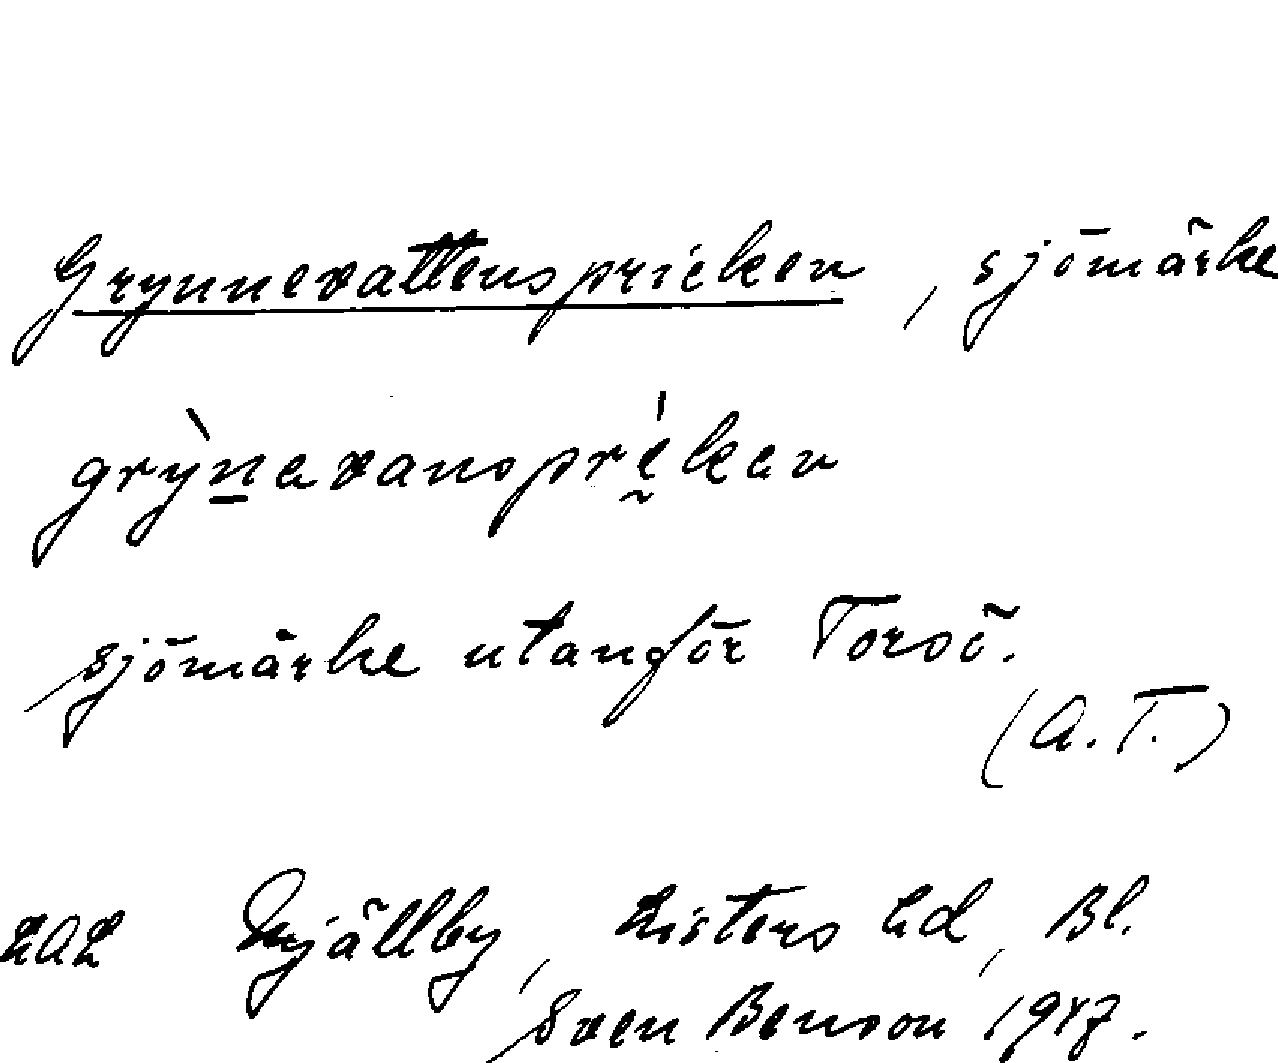 Grynnevattenspricken, sjömärke
grỳnavanspr̰ékan
sjömärke utanför Torsö.
(A.T.)
LAL Mjällby, Listers hd, Bl.
Sven Benson 1947.